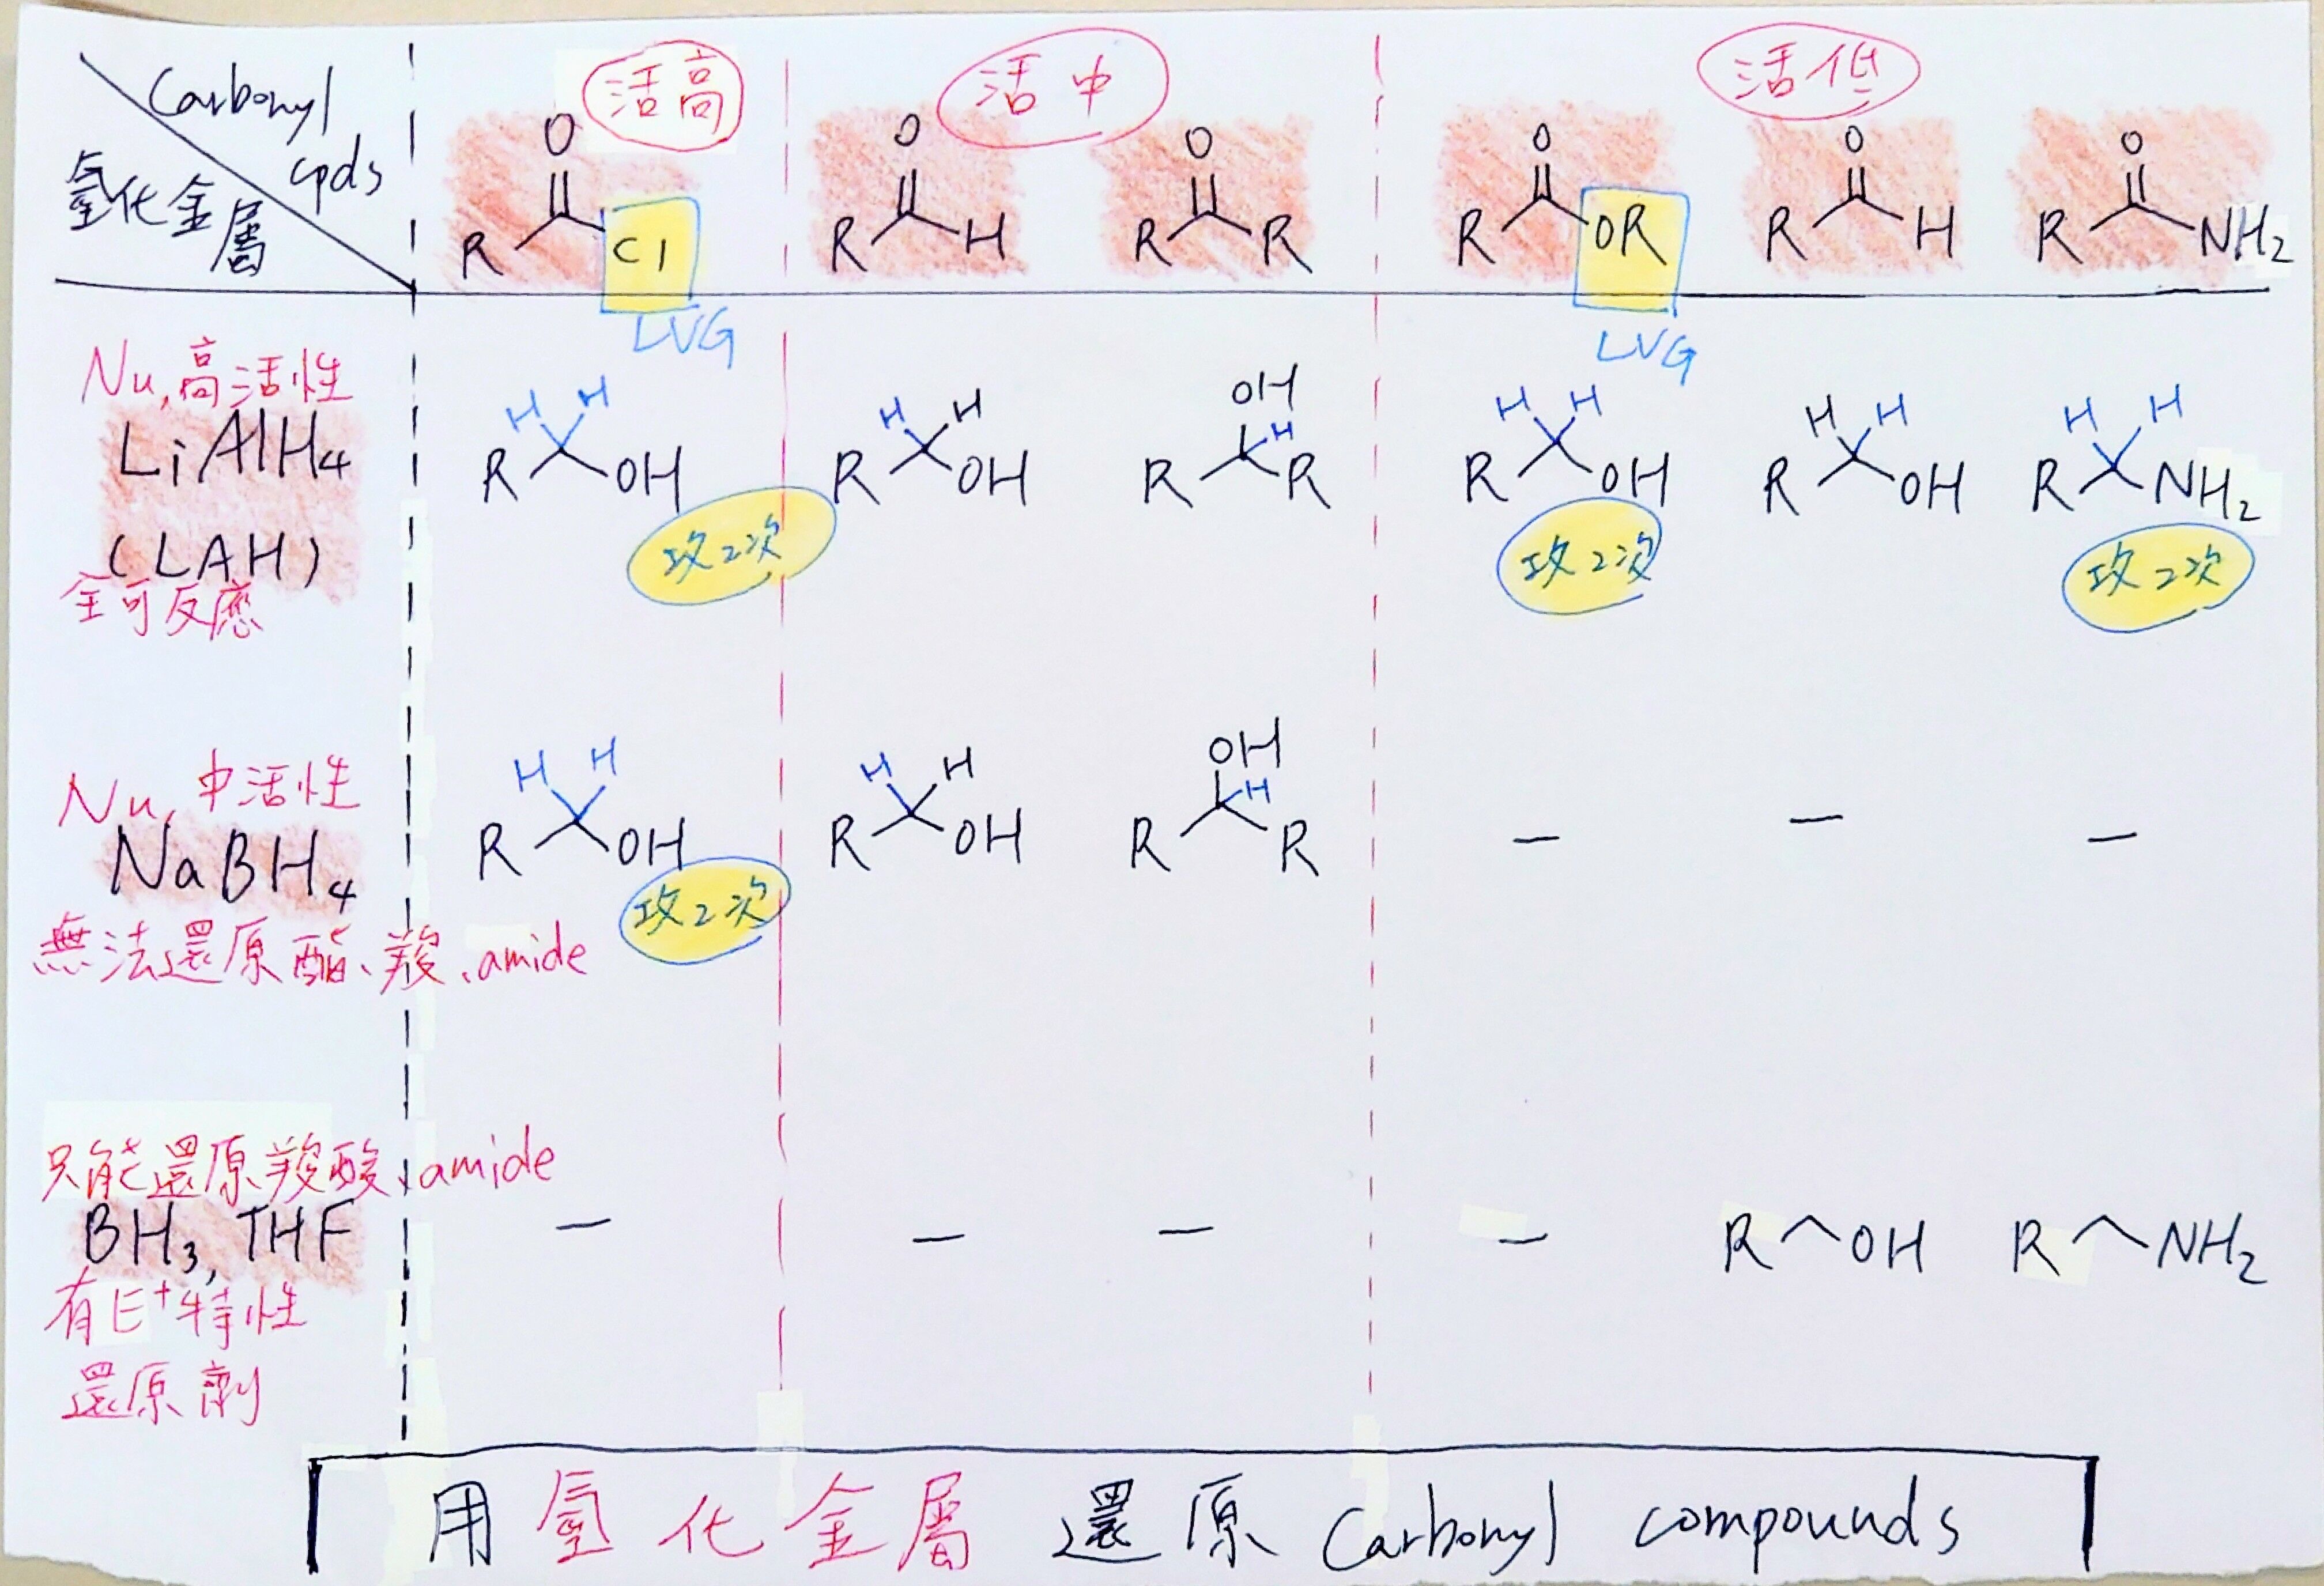 Carbonyl cpds
氫化金屬
活高
活中
活低
O
R Cl
LVG
O
R H
O
R R
O
R OR
LVG
O
R H
O
R NH₂
Nu, 高活性
LiAlH₄
(LAH)
全可反應
H H
R OH
攻2次
H H
R OH
OH
H
R R
H H
R OH
攻2次
H H
R OH
H H
R NH₂
攻2次
Nu, 中活性
NaBH₄
無法還原酯、羧、amide
H H
R OH
攻2次
H H
R OH
OH
H
R R
–
–
–
只能還原羧酸、amide
BH₃, THF
有E⁺特性
還原劑
–
–
–
–
R OH
R NH₂
用氫化金屬還原 Carbonyl compounds